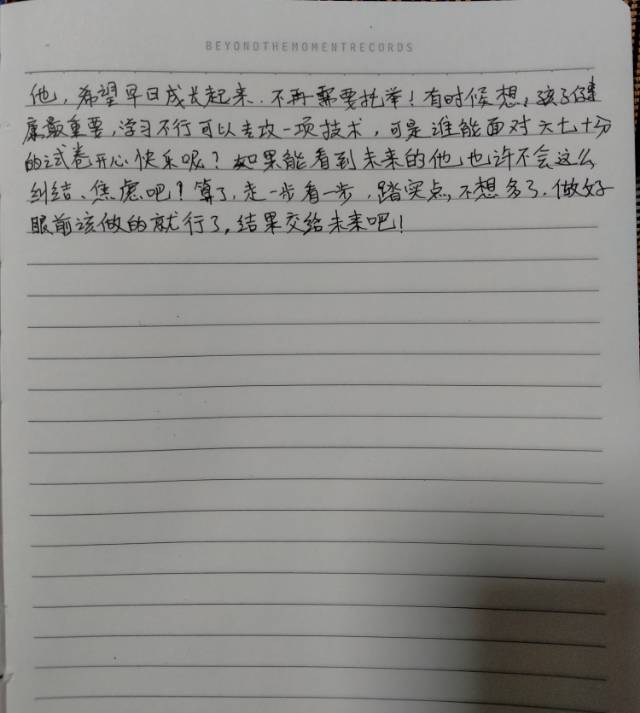 BEYONDTHEMOMENTRECORDS
他，希望早日成长起来．不再需要托举！有时候想，孩子健
康最重要，学习不行可以去攻一项技术，可是谁能面对六七十分
的试卷开心快乐呢？如果能看到未来的他，也许不会这么
纠结、焦虑吧？算了，走一步看一步，踏实点，不想多了．做好
眼前该做的就行了，结果交给未来吧！